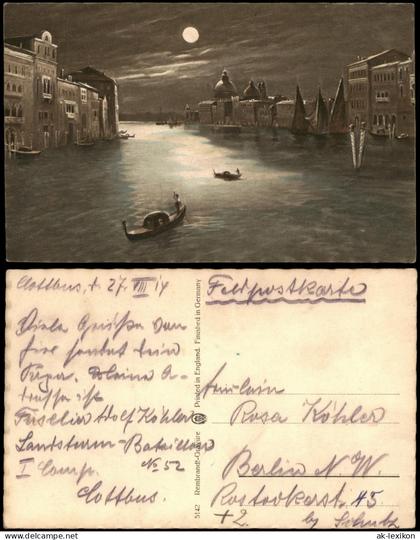 Cottbus, d. 27 VIII 14
Feldpostkarte
Viele Grüße von
hier sendet Dein
Papa. Meine A-
dresse ist
Füselier Adolf Köhler
Landsturm-Bataillon
I Comp. No 52
Cottbus.
Fräulein
Rosa Köhler
Berlin N. W.
Rostockerst. 45
+2. by Schulz
5142 Rembrandt-Gravure Printed in England. Finished in Germany
ak-lexikon
© ak-lexikon.de